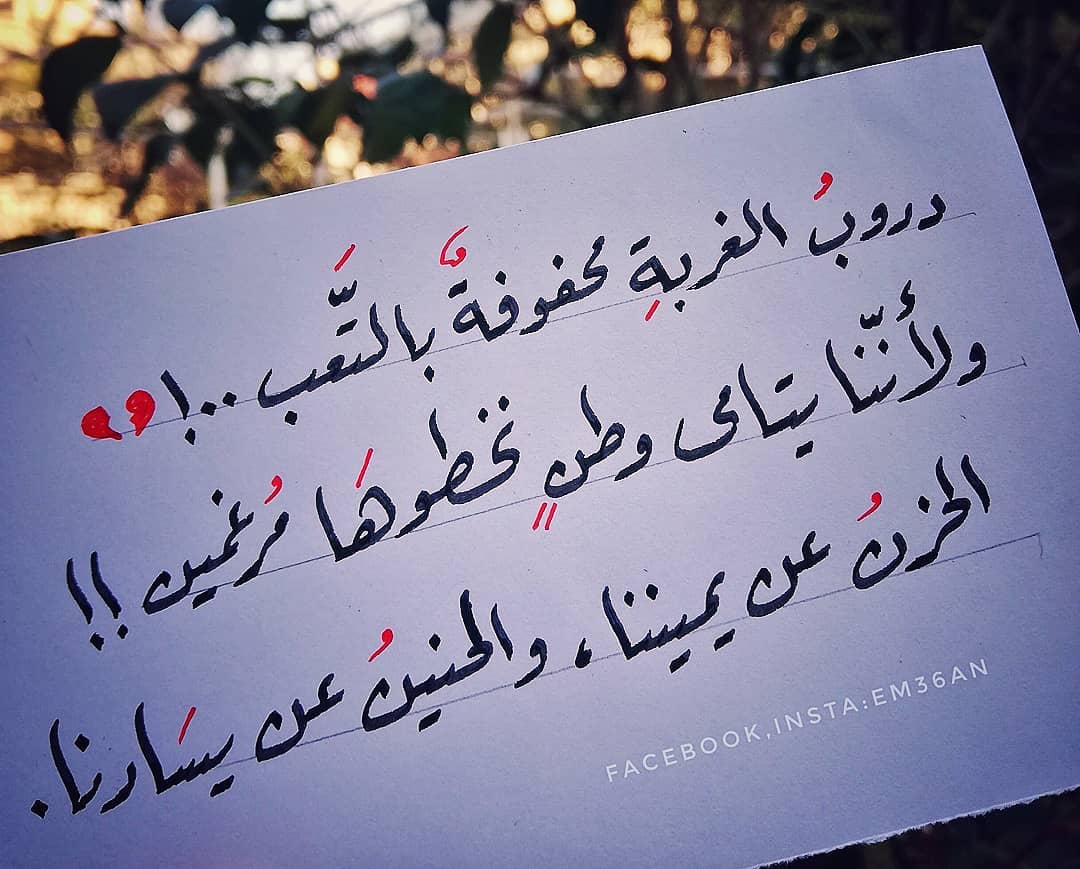 دروبُ الغربةِ محفوفةٌ بالتَّعب ..!
ولأننّا يتامى وطنٍ نخطوهَا مُرغمين !!
الحزنُ عن يميننا، والحنينُ عن يسَارنا.
FACEBOOK,INSTA:EM36AN